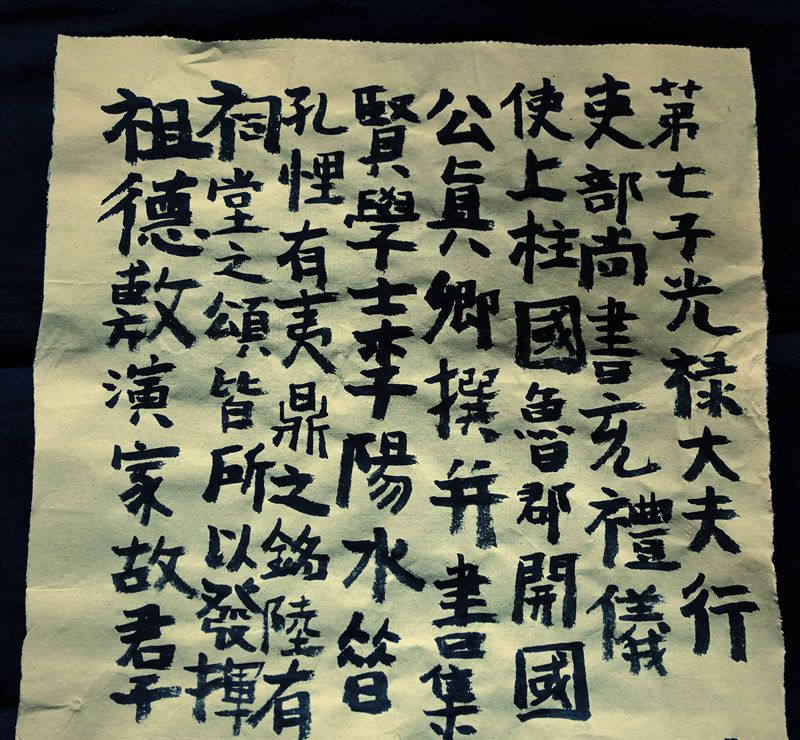 苐七子光祿大夫行
吏部尚書充禮儀
使上柱國魯郡開國
公眞卿撰并書集
賢學士李陽水
孔悝有夷鼎之銘陸有
祠堂之頌皆所以發揮
祖德敷演家故君子